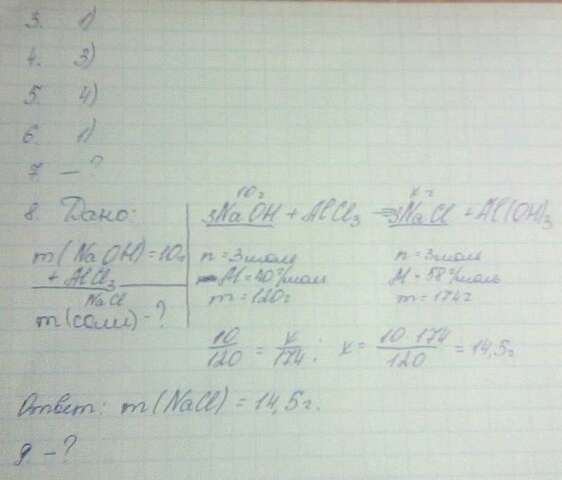 3. 1)
4. 3)
5. 4)
6. 1)
7. – ?
8. Дано:
m(NaOH)=10г
+ AlCl₃
NaCl
m(соли) - ?
10г x г
3NaOH + AlCl₃ → 3NaCl + Al(OH)₃
n = 3моль n = 3моль
M = 40г/моль M = 58г/моль
m = 120г m = 174г
10/120 = x/174; x = 10·174/120 = 14,5г
Ответ: m(NaCl) = 14,5г.
9 – ?